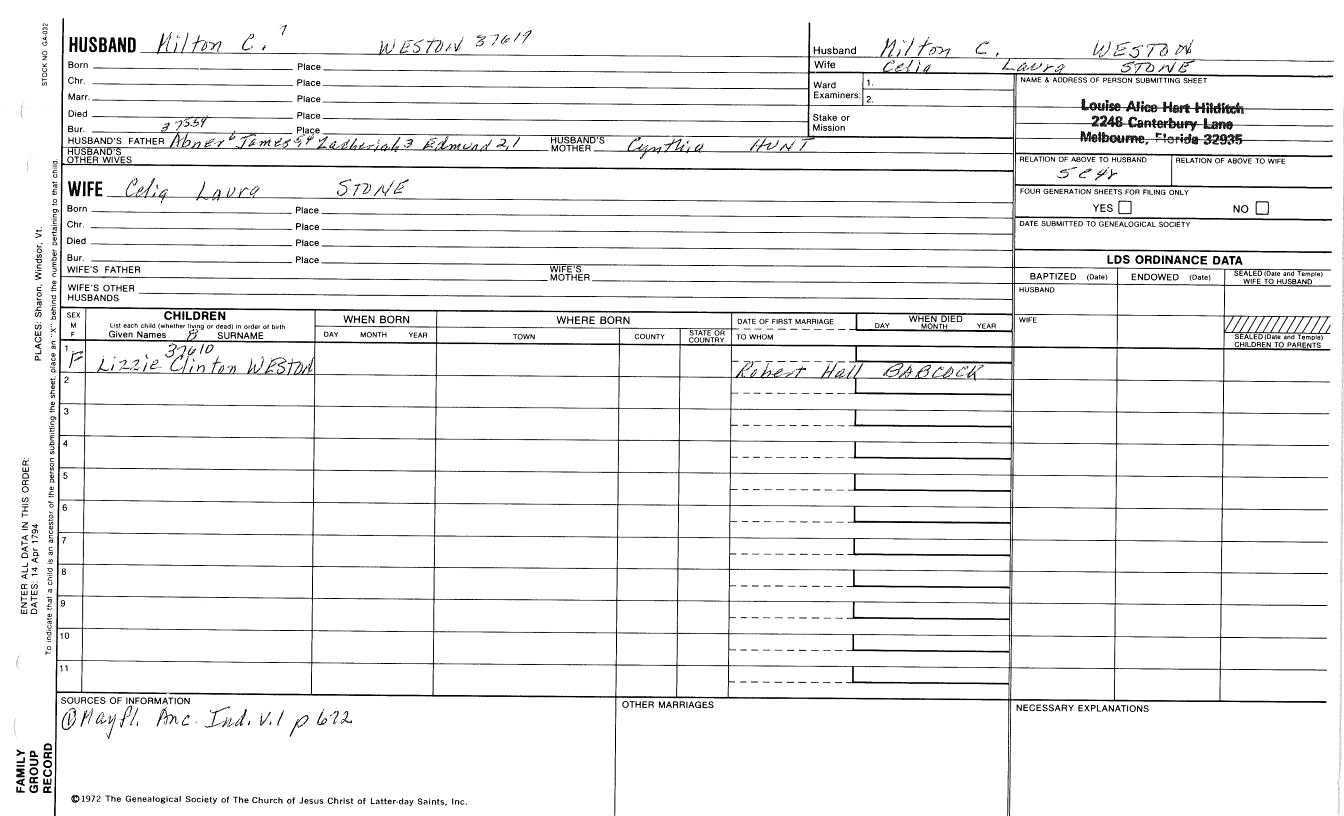 STOCK NO. GA-032
HUSBAND Milton C. 7 WESTON 37619
Born Place
Chr. Place
Marr. Place
Died Place
Bur. Place
37554
HUSBAND'S FATHER Abner 6 James 5,4 Zacheriah 3 Edmund 2,1 HUSBAND'S MOTHER Cynthia HUNT
HUSBAND'S OTHER WIVES
WIFE Celia Laura STONE
Born Place
Chr. Place
Died Place
Bur. Place
WIFE'S FATHER WIFE'S MOTHER
WIFE'S OTHER HUSBANDS
Husband Milton C. WESTON
Wife Celia Laura STONE
Ward Examiners: 1.
2.
Stake or Mission
NAME & ADDRESS OF PERSON SUBMITTING SHEET
Louise Alice Hart Hilditch
2248 Canterbury Lane
Melbourne, Florida 32935
RELATION OF ABOVE TO HUSBAND RELATION OF ABOVE TO WIFE
5C4r
FOUR GENERATION SHEETS FOR FILING ONLY
YES NO
DATE SUBMITTED TO GENEALOGICAL SOCIETY
LDS ORDINANCE DATA
BAPTIZED (Date) ENDOWED (Date) SEALED (Date and Temple) WIFE TO HUSBAND
HUSBAND
WIFE
SEALED (Date and Temple) CHILDREN TO PARENTS
SEX M F
CHILDREN
List each child (whether living or dead) in order of birth
Given Names SURNAME
WHEN BORN
DAY MONTH YEAR
WHERE BORN
TOWN COUNTY STATE OR COUNTRY
DATE OF FIRST MARRIAGE
TO WHOM
WHEN DIED
DAY MONTH YEAR
37610
1 F Lizzie Clinton WESTON Robert Hall BABCOCK
2
3
4
5
6
7
8
9
10
11
SOURCES OF INFORMATION
① Mayfl. Anc. Ind. V.1 p 672
OTHER MARRIAGES
NECESSARY EXPLANATIONS
©1972 The Genealogical Society of The Church of Jesus Christ of Latter-day Saints, Inc.
FAMILY GROUP RECORD
ENTER ALL DATA IN THIS ORDER:
DATES: 14 Apr 1794
PLACES: Sharon, Windsor, Vt.
To indicate that a child is an ancestor of the person submitting the sheet, place an "X" behind the number pertaining to that child.